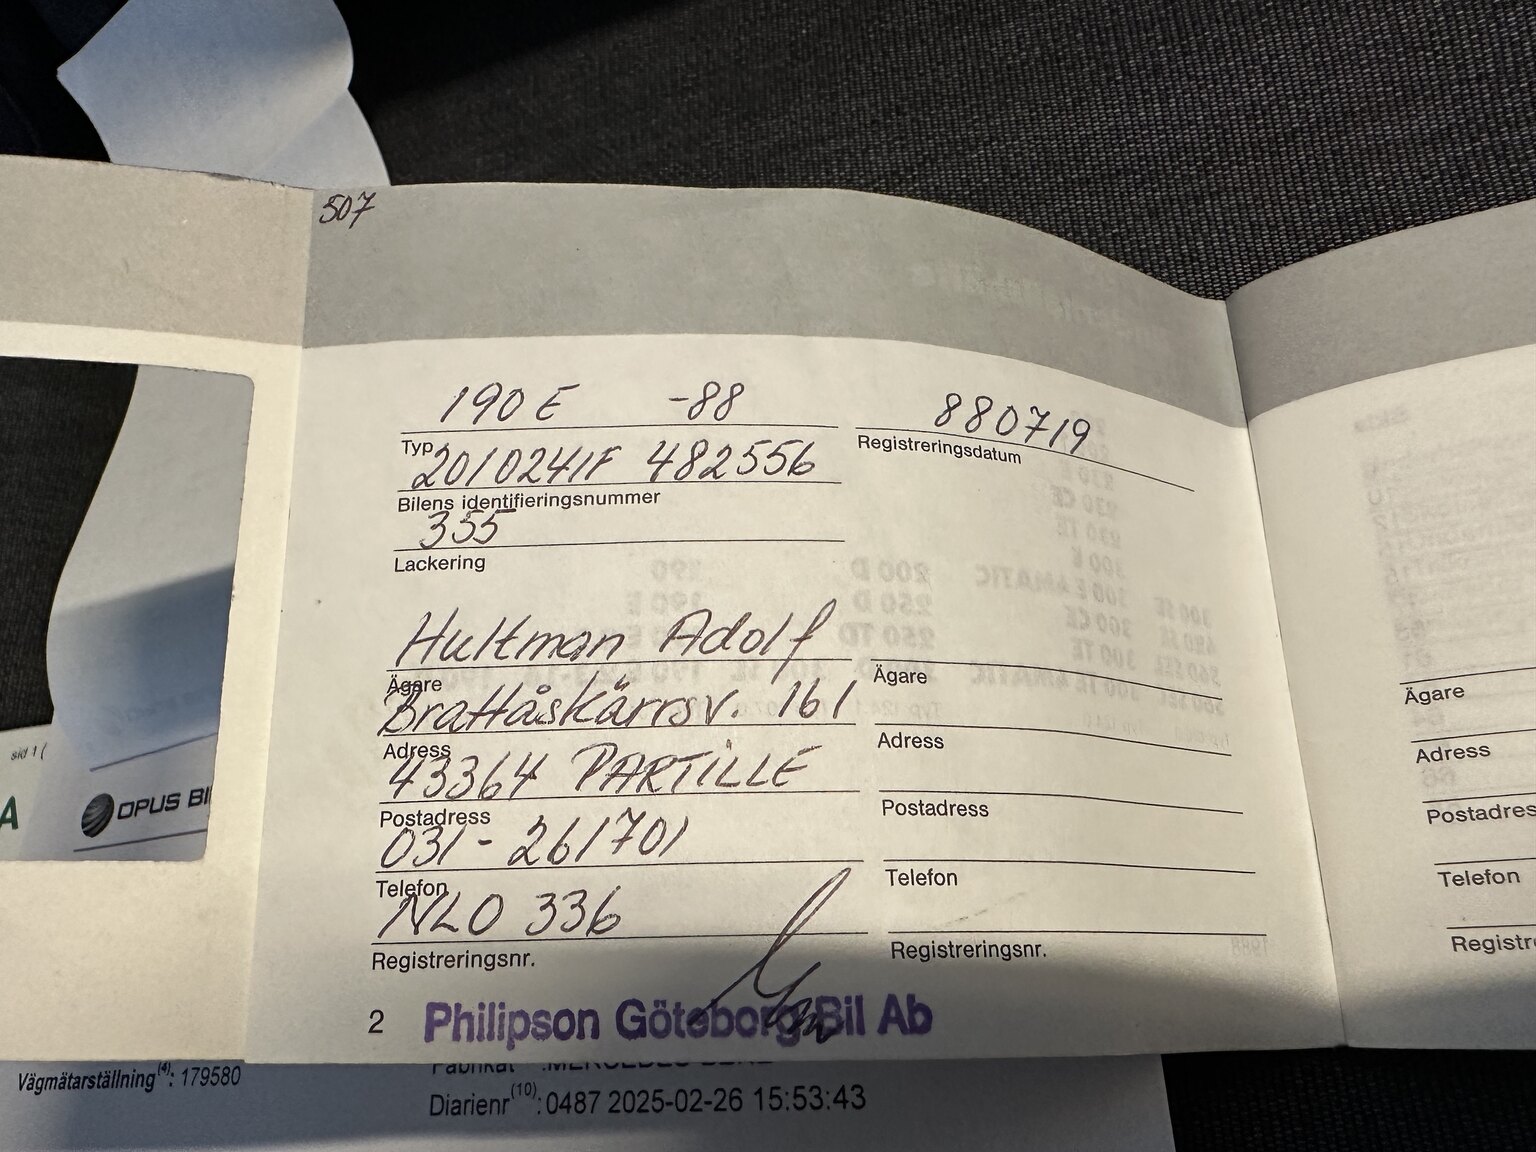 507
190 E -88
Typ
880719
Registreringsdatum
2010241F 482556
Bilens identifieringsnummer
355
Lackering
Hultman Adolf
Ägare
Brattåskärrsv. 161
Adress
43364 PARTILLE
Postadress
031-261701
Telefon
NLO 336
Registreringsnr.
Ägare
Adress
Postadress
Telefon
Registreringsnr.
2
Philipson Göteborg Bil Ab
Ägare
Adress
Postadress
Telefon
sid 1 (
A
OPUS BI
Vägmätarställning(4): 179580
Fabrikat
Diarienr(10): 0487 2025-02-26 15:53:43